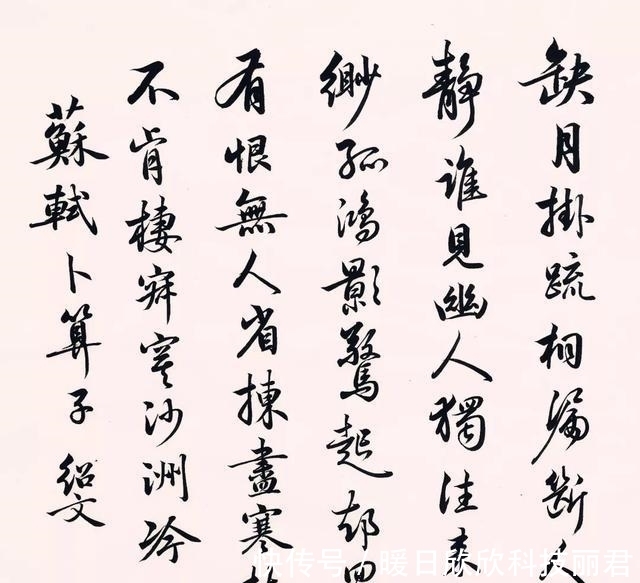 缺月掛疏桐漏斷
靜誰見幽人獨往
緲孤鴻影驚起却
有恨無人省揀盡寒
不肯棲寂寞沙洲冷
蘇軾卜算子 紹文
快传号 / 暖日欣欣科技丽君